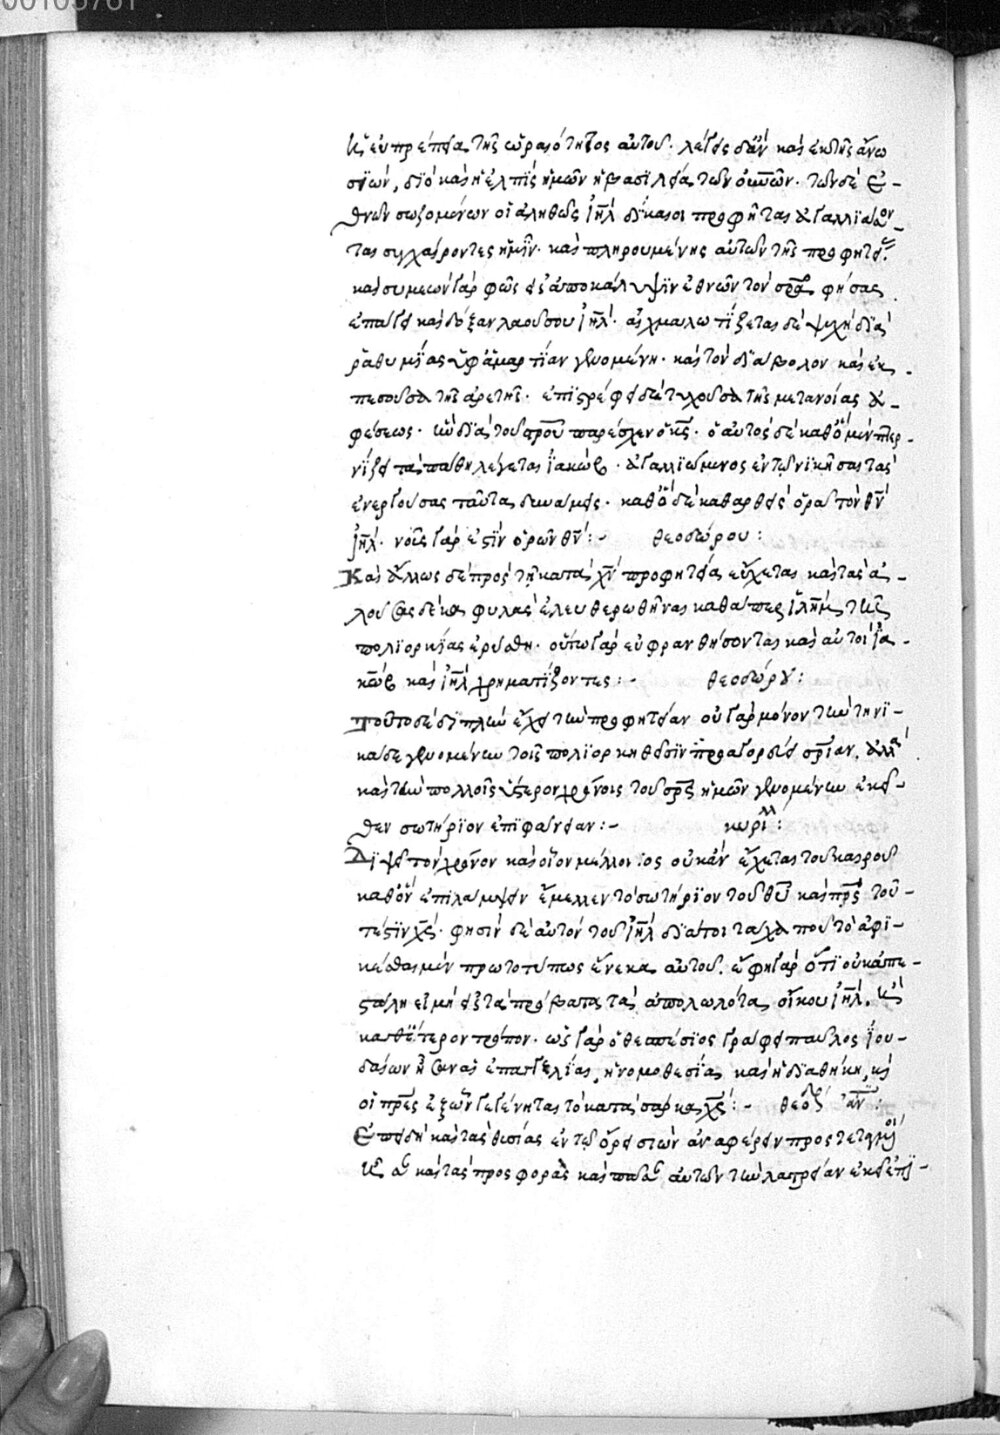 00105761
κ εὐπρέπεια τῆς ὡραιότητος αὐτοῦ. λέγει δ' ἂν καὶ ἐκ τῆς ἄνω
σιών, διὸ καὶ ἡ ἐλπὶς ἡμῶν ἡ βασιλεία τῶν οὐνῶν. τῶν δὲ ἐ-
θνῶν σωζομένων οἱ ἀληθῶς ιηλ δίκαιοι προφῆται ἀγαλλιῶν-
ται συγχαίροντες ἡμῖν. καὶ πληρουμένης αὐτῶν τῆς προφητεί
καὶ συμεὼν γὰρ φῶς εἰς ἀποκάλυψιν ἐθνῶν τὸν σρα φήσας
ἐπάγει καὶ δόξαν λαοῦ σου ιηλ. αἰχμαλωτίζεται δὲ ψυχὴ διὰ
ῥαθυμίας ὑφ' ἁμαρτίαν γενομένη. καὶ τὸν διάβολον καὶ ἐκ-
πεσοῦσα τῆς ἀρετῆς. ἐπιστρέφει δὲ τυχοῦσα τῆς μετανοίας ἀ-
φέσεως. ἣν διὰ τοῦ σρου παρέσχεν ὁ κς. ὁ αὐτὸς δὲ καθὸ μὲν πτερ-
νίζει τὰ πάθη λέγεται ἰακώβ. ἀγαλλιώμενος ἐν τῷ νικῆσαι τὰς
ἐνεργούσας ταῦτα δυνάμεις. καθὸ δὲ καθαρθεὶς ὁρᾷ τὸν θν
ιηλ. νοῦς γάρ ἐστιν ὁρῶν θν :- θεοδώρου :
Καὶ ἄλλως δὲ πρὸς τῇ κατὰ χν προφητείᾳ εὔχεται καὶ τὰς ἁ-
λούσας δέκα φυλὰς ἐλευθερωθῆναι καθάπερ ιλημ τῆς
πολιορκίας ἐρύσθη. οὕτω γὰρ εὐφρανθήσονται καὶ αὐτοὶ ἰα-
κὼβ καὶ ιηλ χρηματίζοντες :- θεοδώρου :
τοῦτο δὲ διπλῆν ἔχει τὴν προφητείαν οὐ γὰρ μόνον τὴν τηνι-
καῦτα γενομένην τοῖς πολιορκηθεῖσιν προαγορεύει σριαν. ἀλλὰ
καὶ τὴν πολλοῖς ὕστερον χρόνοις τοῦ σρς ἡμῶν γενομένην ἐκεῖ-
θεν σωτήριον ἐπιφάνειαν :- κυρίλλ :
Διψεῖ τὸν χρόνον καὶ οἷον μέλλοντος οὐκ ἀνέχεται τοῦ καιροῦ
καθ' ὃν ἐπιλάμψειν ἔμελλεν τὸ σωτήριον τοῦ θυ καὶ πρς τοῦ-
τέστιν χς. φησὶν δὲ αὐτὸν τοῦ ιηλ διάτοι τάχα που τὸ ἀφι-
κέσθαι μὲν πρωτοτύπως ἕνεκα αὐτοῦ. ἔφη γὰρ ὅτι οὐκ ἀπε-
στάλην εἰ μὴ εἰς τὰ πρόβατα τὰ ἀπολωλότα οἴκου ιηλ. κ
καθ' ἕτερον τρόπον. ὡς γὰρ ὁ θεσπέσιος γράφει παῦλος ἰου-
δαίων ἦσαν αἱ ἐπαγγελίαι, ἡ νομοθεσία καὶ ἡ διαθήκη, κ
οἱ πρες ἐξ ὧν γεγένηται τὸ κατὰ σάρκα χς :- θεοδ ἀν :
Ἐπειδὴ καὶ τὰς θυσίας ἐν τῷ ὄρει σιὼν ἀναφέρειν προστεταγμ
κ καὶ τὰς προσφορὰς καὶ πᾶσαν αὐτῶν τὴν λατρείαν ἐκεῖ ἐπι-